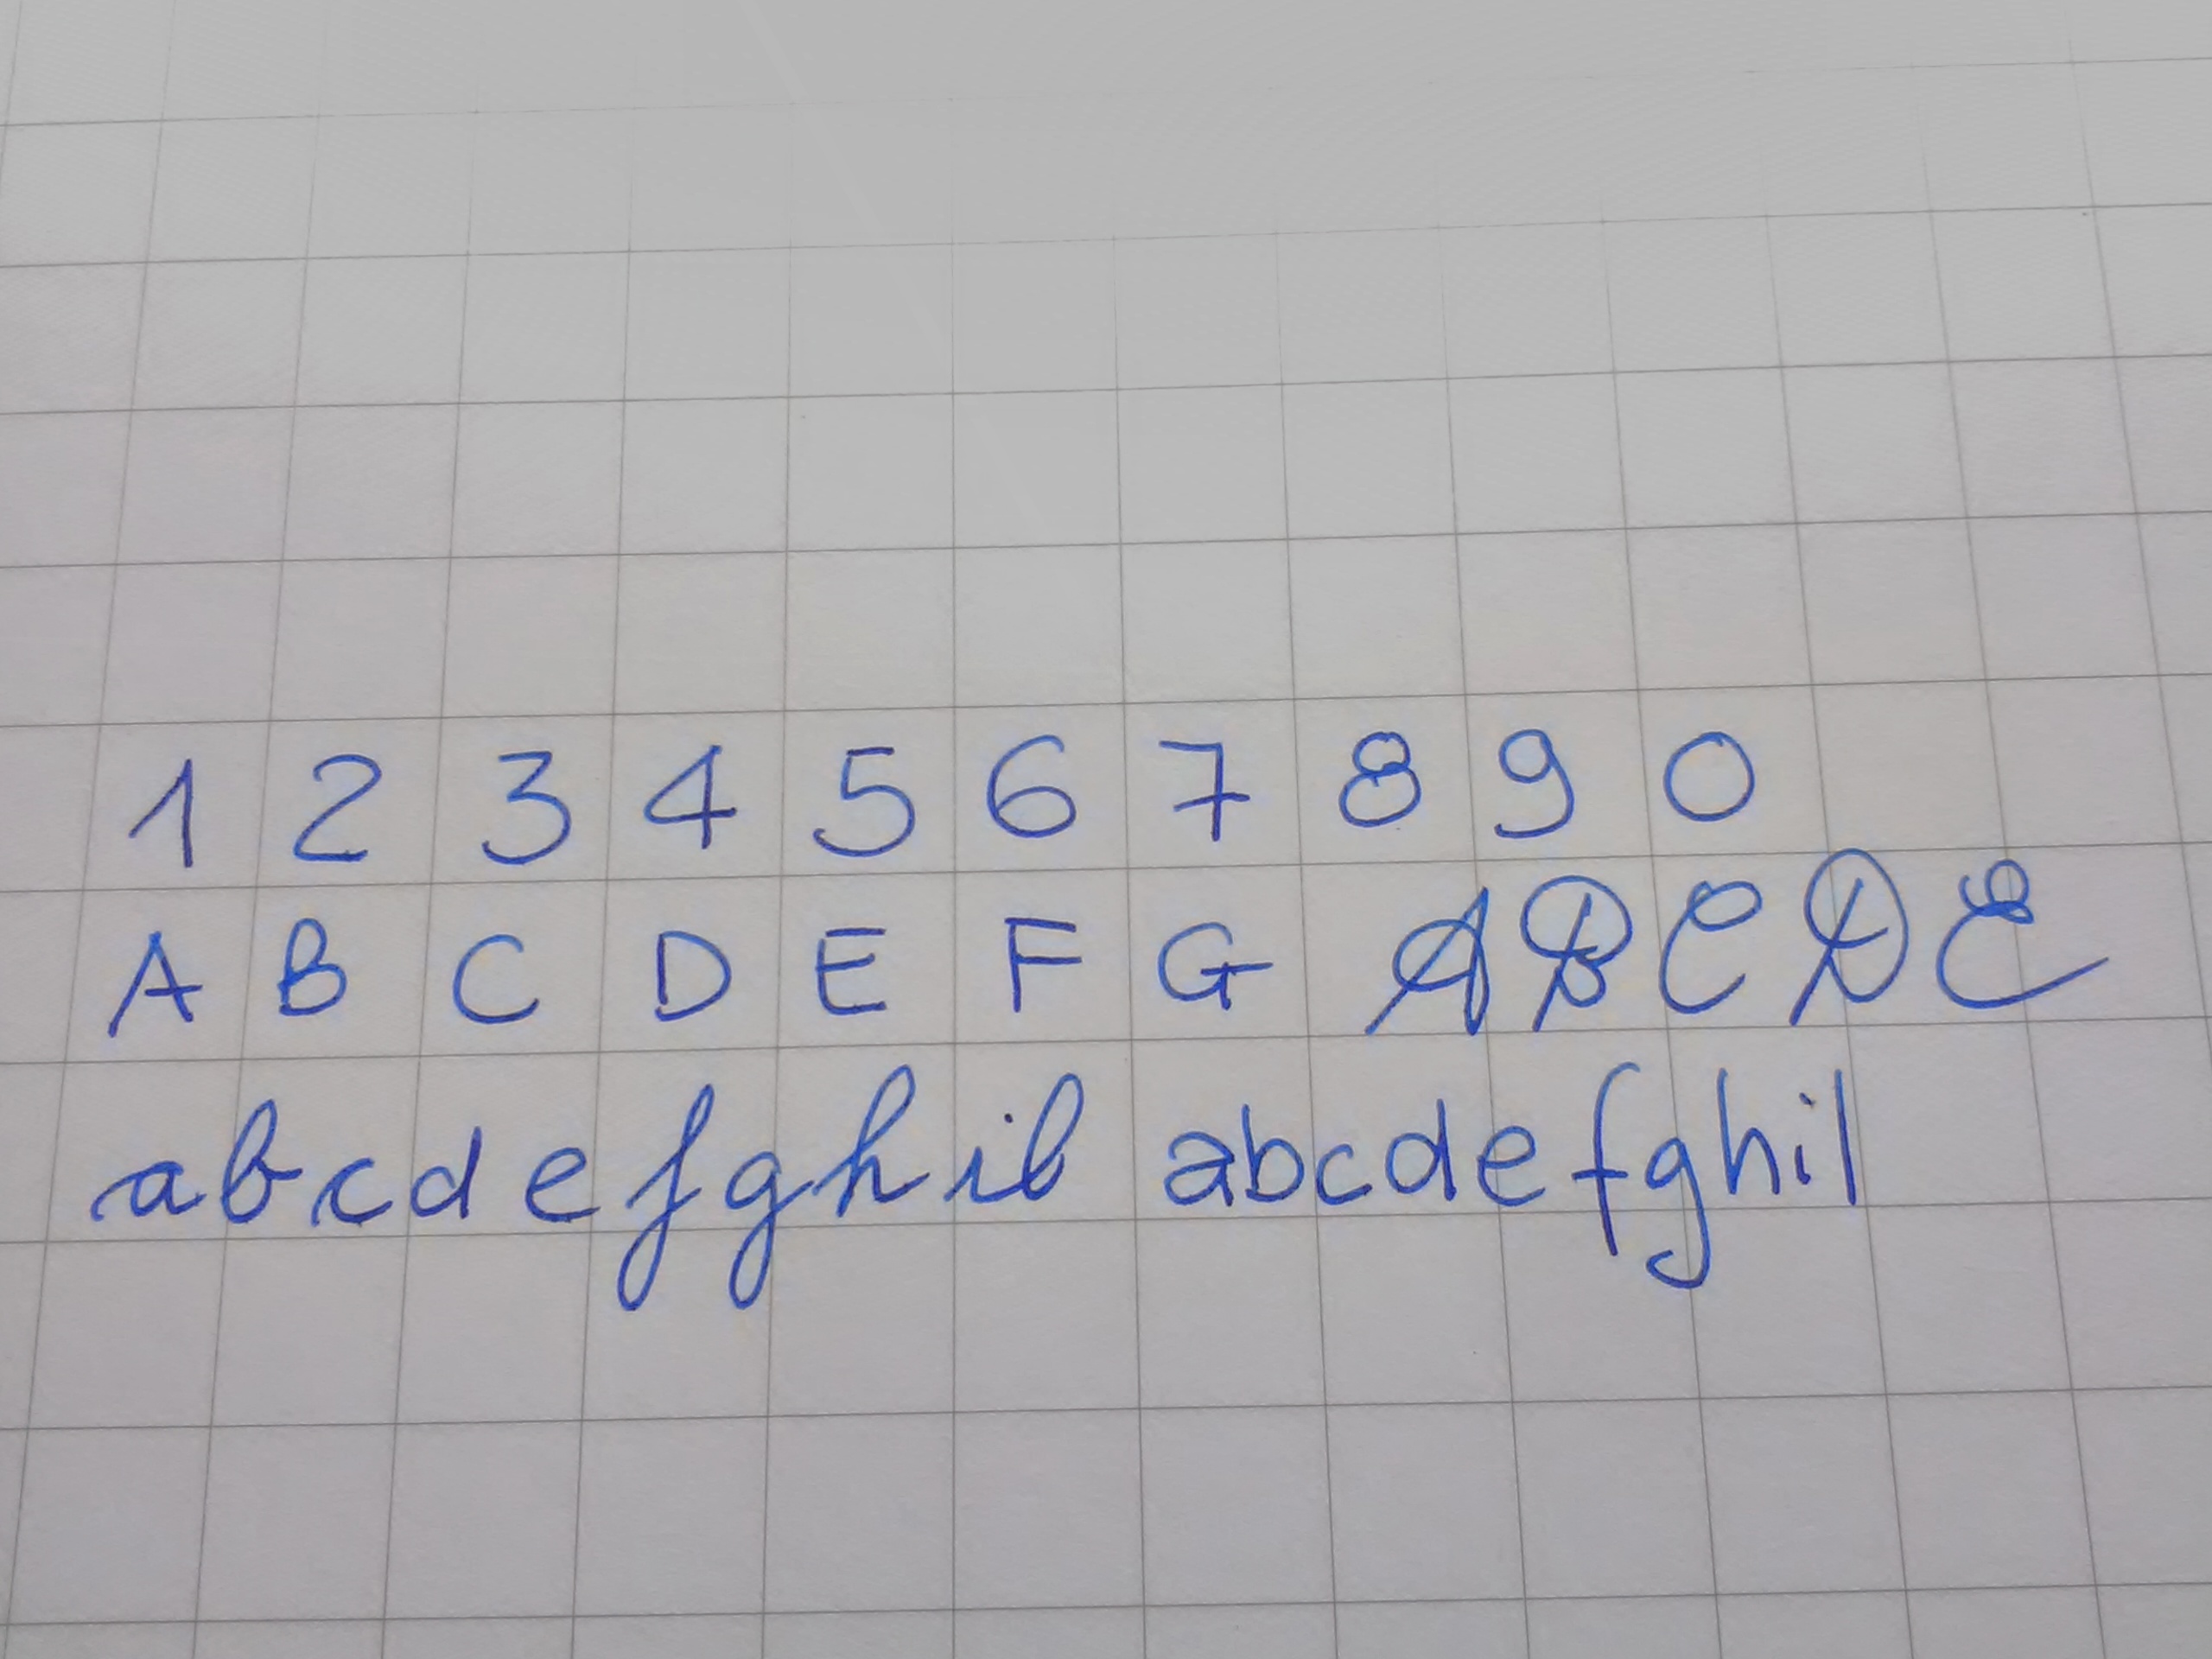 1 2 3 4 5 6 7 8 9 0
A B C D E F G A B C D E
a b c d e f g h i l abcdefghil